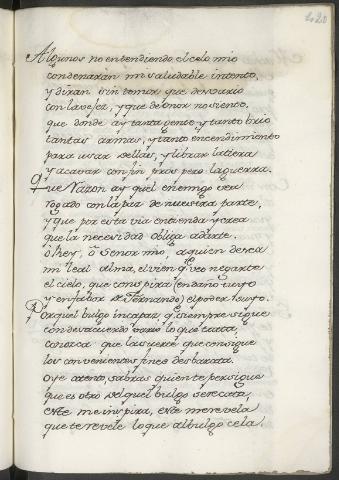 420
Algunos no entendiendo el celo mio
condenaran mi saludable intento,
y diran sin temor que desvario
con la vejez, y que de onor no siento,
que donde ay tanta gente y tanto brio
tantas armas, y tanto encendimiento
para usar dellas, y librar la tierra
y acavar con fin pros pero la guerra.
Que Razon ay q̃ el enemigo sea
rogado con la paz de nuestra parte,
y que por esta via entienda y crea
que la necesidad obliga a darte.
o Rey, o Señor mio, a quien desea
mi leal alma, el vien q̃ veo negarte
el cielo, que conspira (en daño tuyo
y en fabor de Fernando) el poder suyo.
Porque el bulgo incapaz, q̃ siempre sigue
con desacuerdo lo que trata,
conozca que la guerra que consigue
los convenientes fines desbarata.
oye atento, sabras quien te persigue
que es otro del que el bulgo se recata,
este me inspira, este me revela
que te revele lo que al bulgo cela.